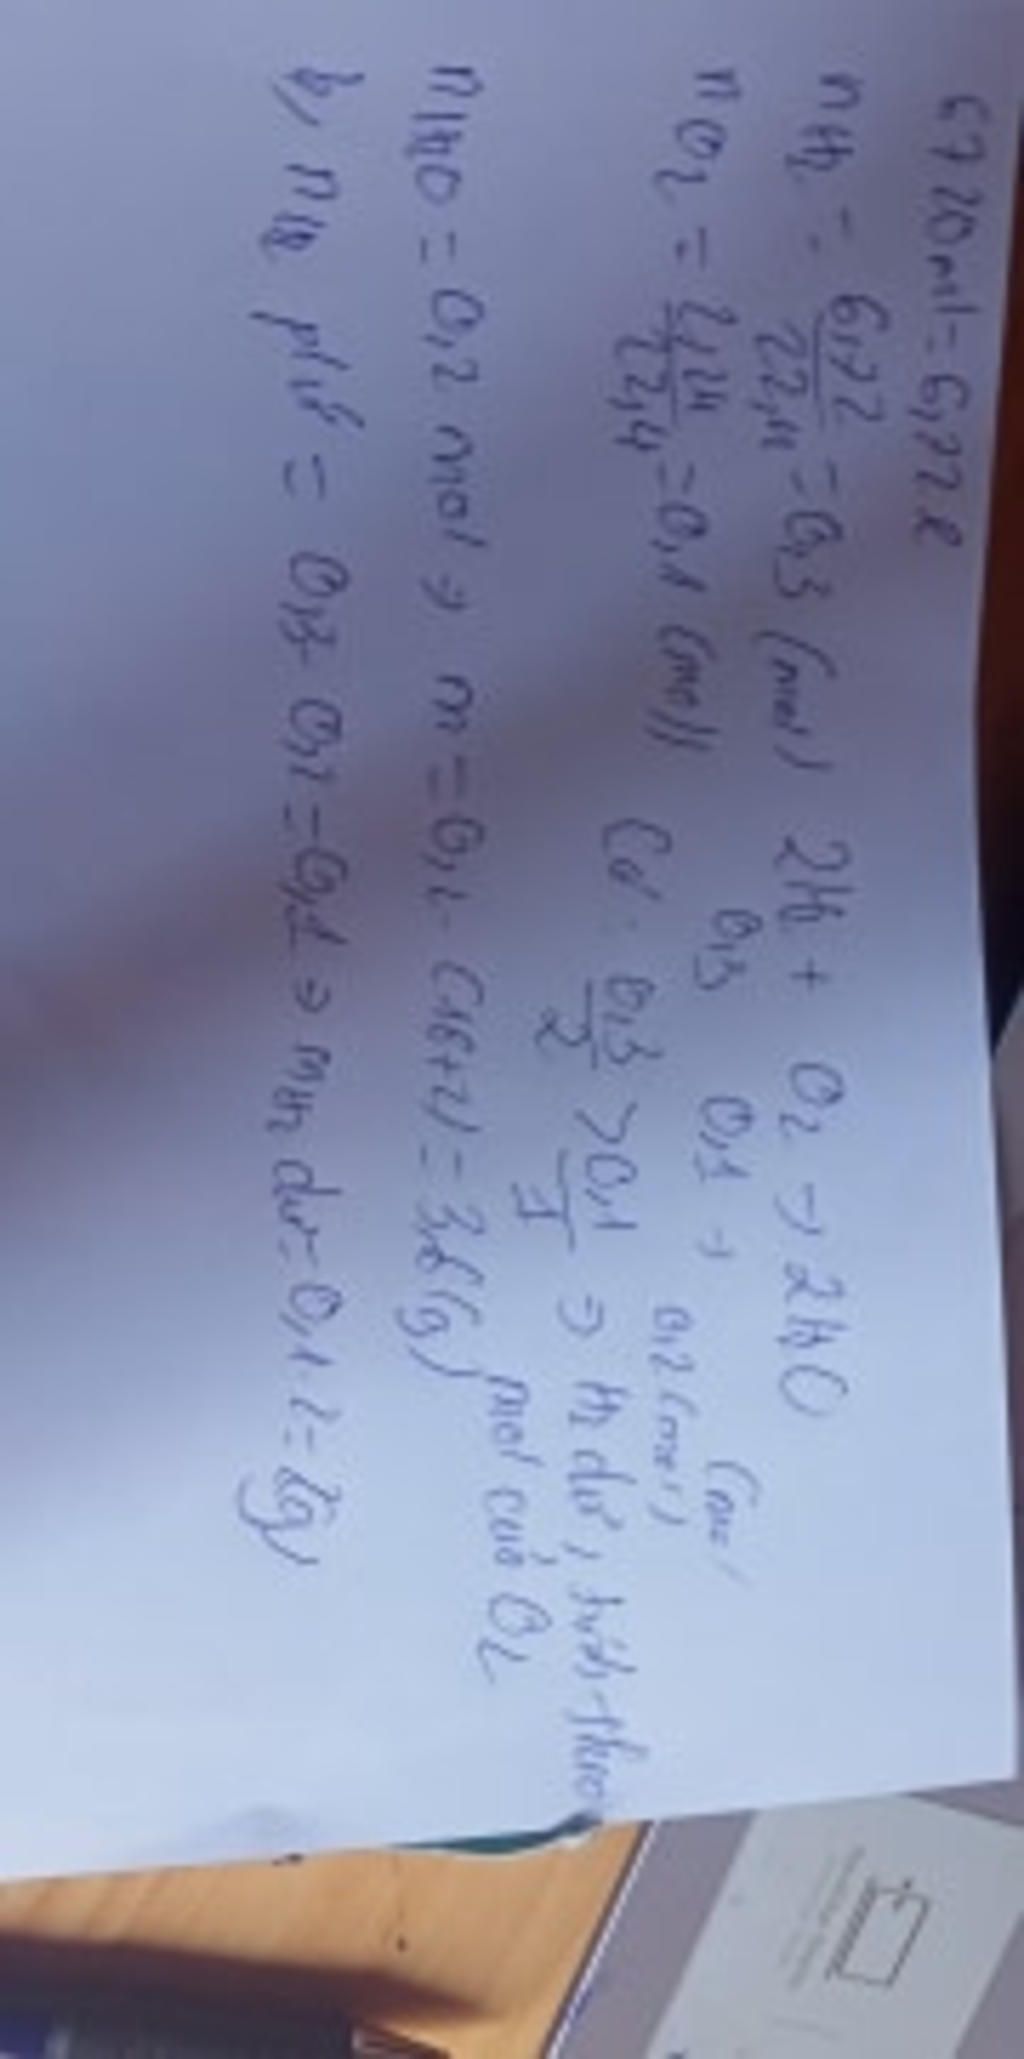 6720ml = 6,72l
nH2 = 6,72/22,4 = 0,3 (mol) 2H2 + O2 → 2H2O
nO2 = 2,24/22,4 = 0,1 (mol) 0,3 0,1 → 0,2 (mol) (mol)
Có: 0,3/2 > 0,1/1 ⇒ H2 dư, tính theo
mol của O2
nH2O = 0,2 mol ⇒ m = 0,2. (16+2) = 3,6(g)
b/ nH2 = 0,3-0,2=0,1 ⇒ mH2 dư = 0,1.2=